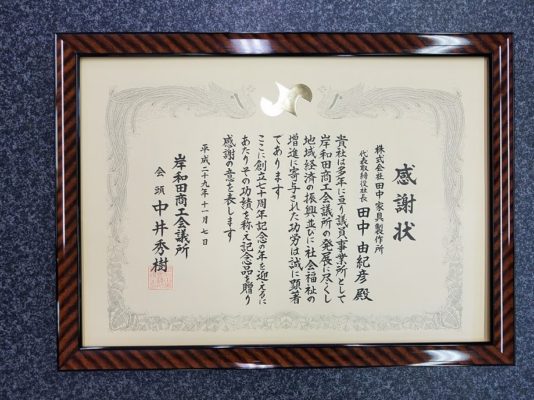 感謝状
株式会社田中家具製作所
代表取締役社長 田中由紀彦 殿
貴社は多年に亘り議員事業所として
岸和田商工会議所の発展に尽くし
地域経済の振興並びに社会福祉の
増進に寄与された功労は誠に顕著
であります
ここに創立七十周年記念の年を迎えるに
あたりその功績を称え記念品を贈り
感謝の意を表します
平成二十九年十一月七日
岸和田商工会議所
会頭 中井秀樹